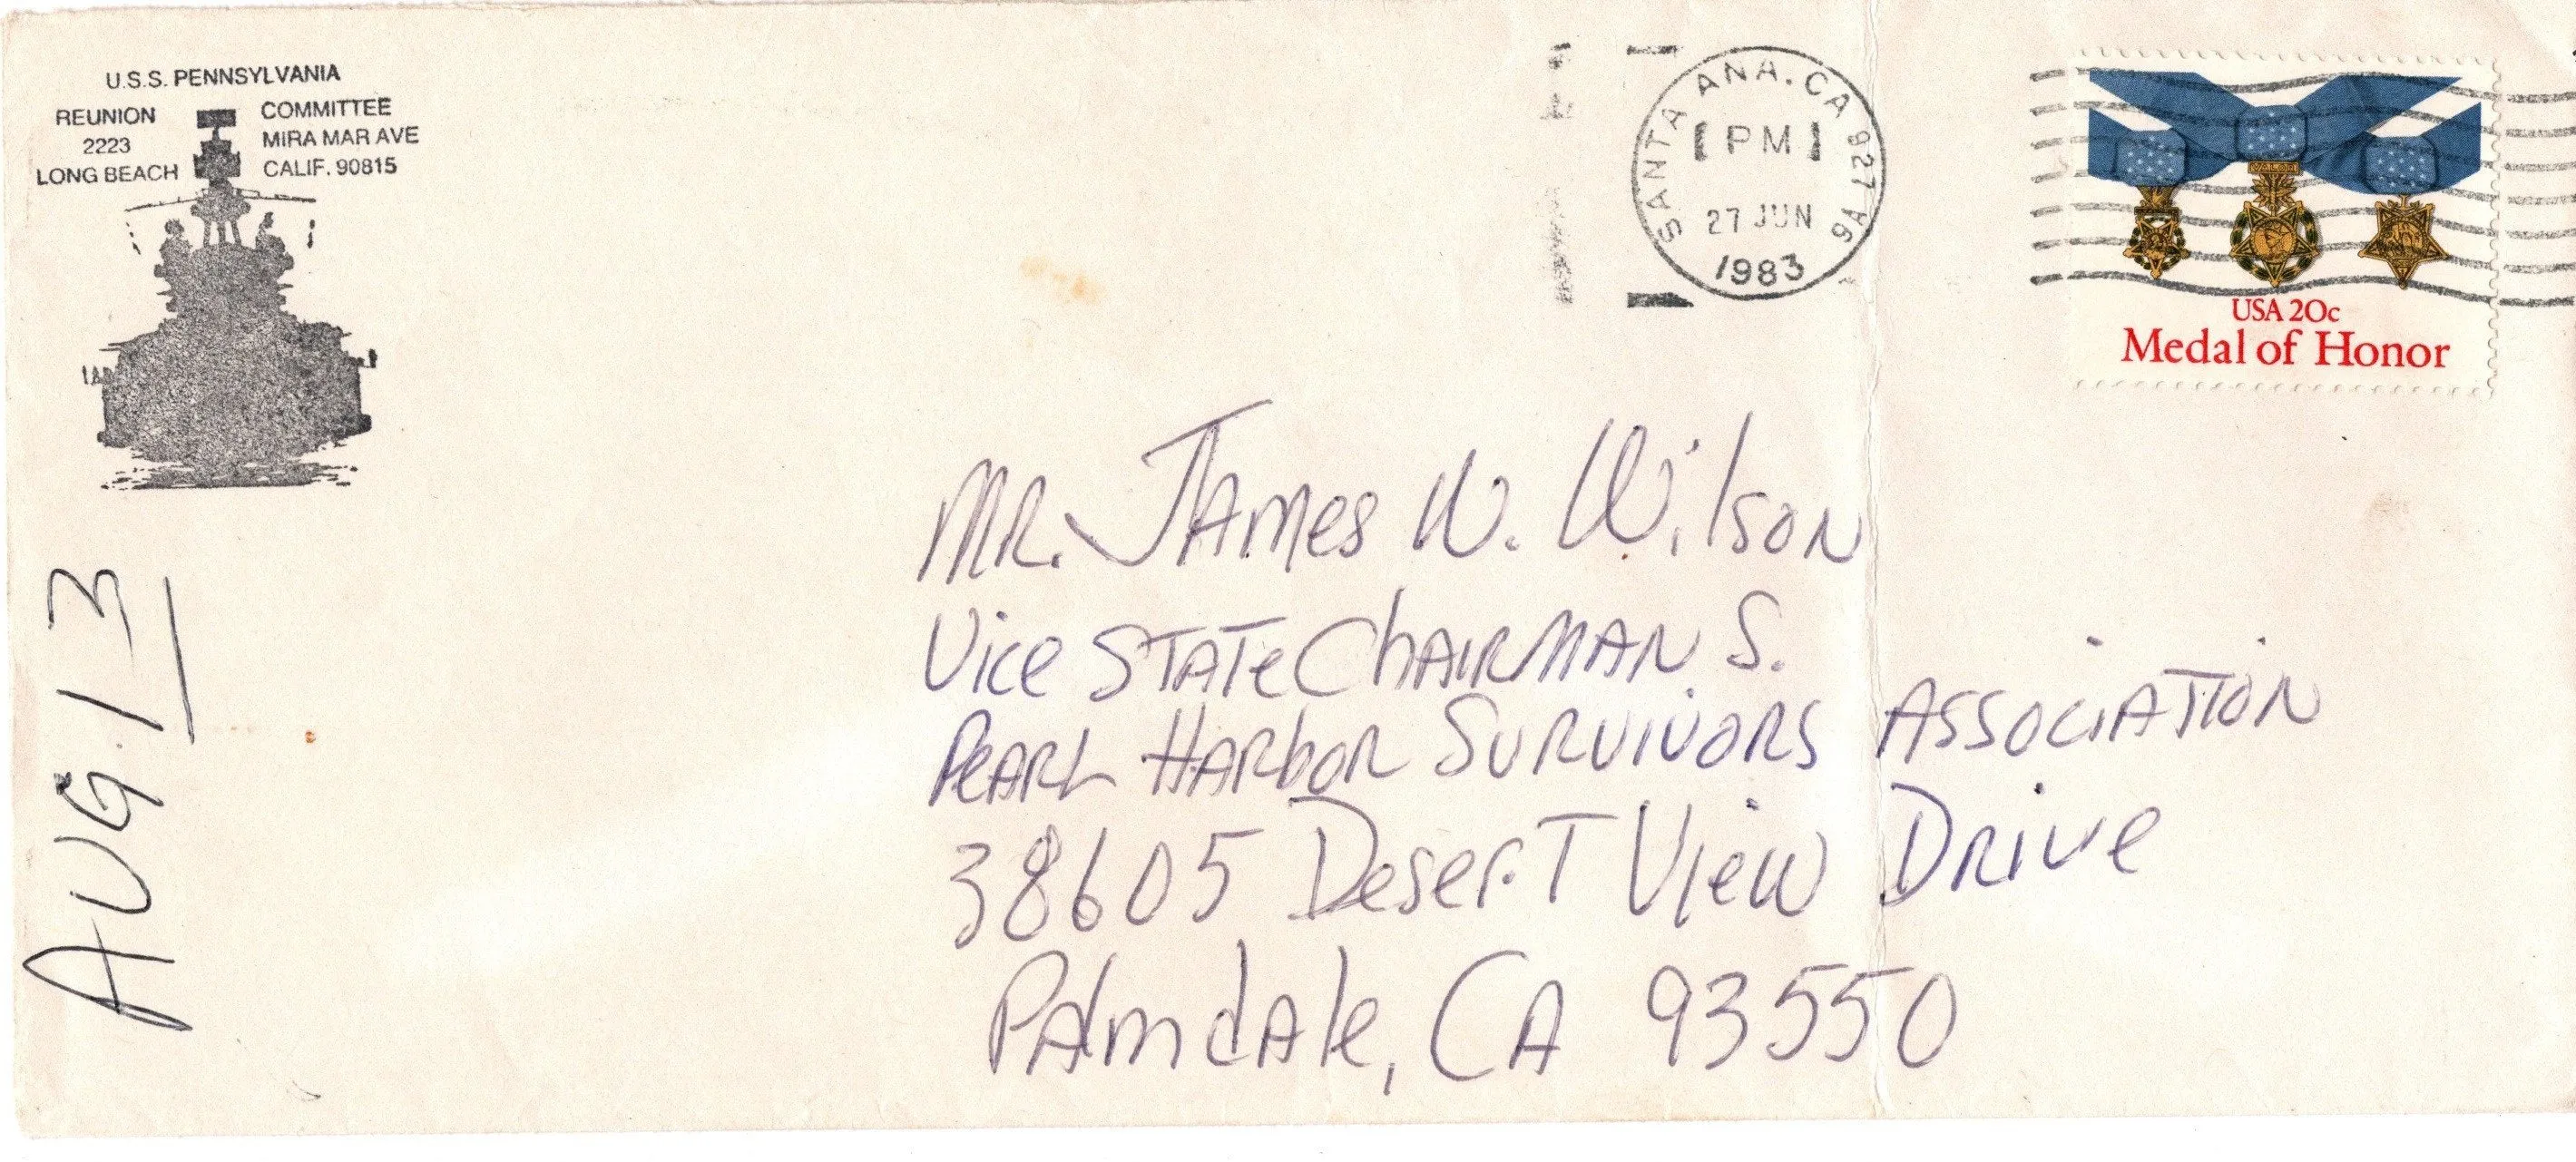 U.S.S. PENNSYLVANIA
REUNION COMMITTEE
2223 MIRA MAR AVE
LONG BEACH CALIF. 90815
SANTA ANA. CA 927
PM
27 JUN
1983
USA 20c
Medal of Honor
MR. JAMes W. Wilson
Vice STATe ChAIRMAN S.
PeARL HARbOR SURVIVORS ASSOCIATION
38605 DeserT View DRive
PAlmdAle, CA 93550
AUG. 13